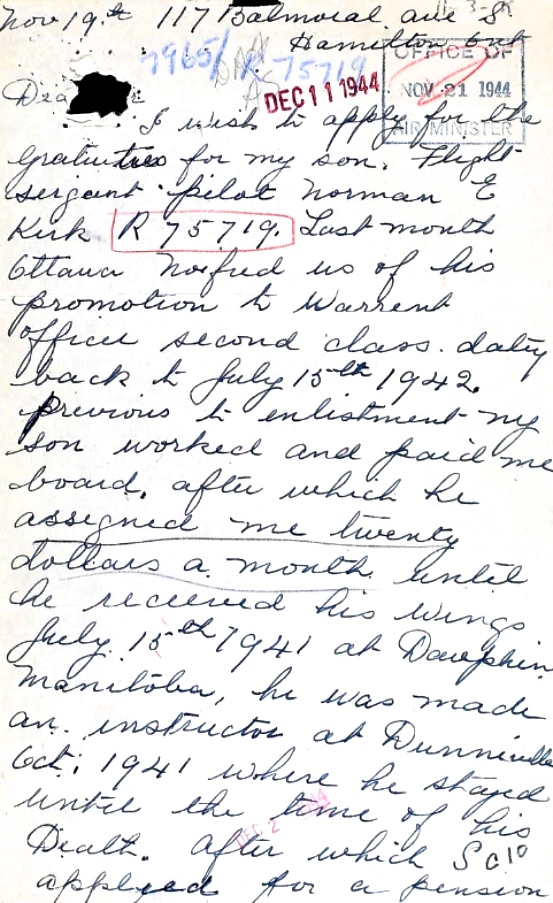 Nov 19.th 117 Balmoral. ave S
Hamilton Ont
7965/ R 75719
DEC 11 1944
OFFICE OF
NOV 21 1944
AIR MINISTER
Dea
I wish to apply for the
Gratuities for my son. Flight
sergant pilot Norman E
Kirk R 75719. Last month
Ottawa Noifred us of his
promotion to Warrent
officer second class. dating
back to July 15th 1942.
previous to enlistment my
son worked and paid me
board. after which he
assigned me twenty
dollars a month until
he received his wings
July 15th 1941 at Dauphin
Manitoba, he was made
an instructor at Dunnville
Oct. 1941 where he stayed
until the time of his
DEC 2 1944
Death. after which
applyed for a pension